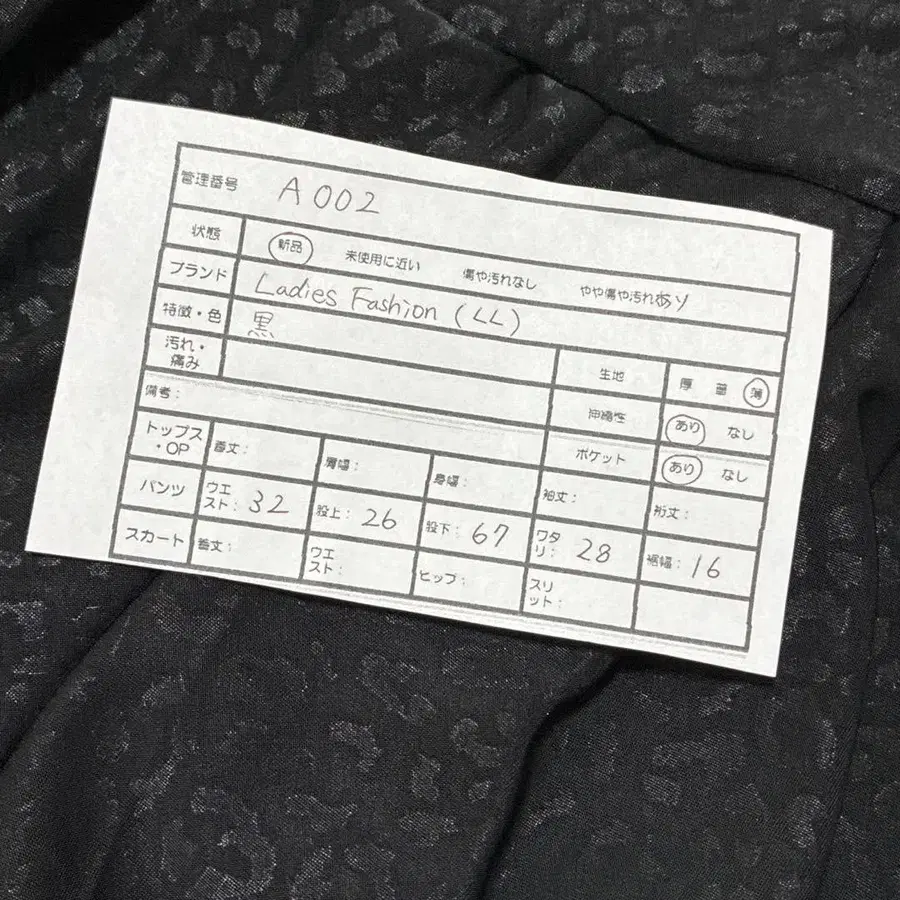 管理番号 A002
状態 新品 未使用に近い 傷や汚れなし やや傷や汚れあり
ブランド Ladies Fashion (LL)
特徴・色 黒 生地 厚 普 薄
汚れ・痛み 伸縮性 あり なし
備考: ポケット あり なし
トップス・OP 着丈: 肩幅: 身幅: 袖丈: 裄丈:
パンツ ウエスト: 32 股上: 26 股下: 67 ワタリ: 28 裾幅: 16
スカート 着丈: ウエスト: ヒップ: スリット: